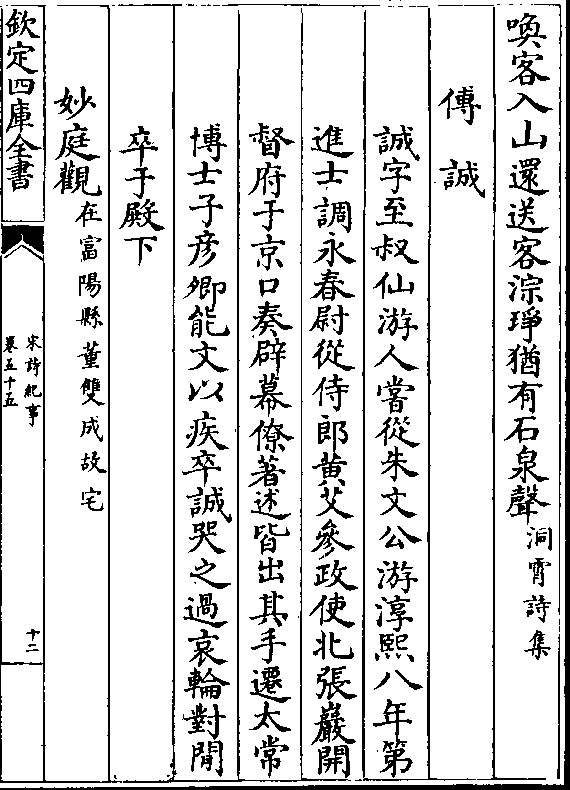 喚客入山還送客淙琤猶有石泉聲洞霄詩集
傅誠
誠字至叔仙游人嘗從朱文公游淳熙八年第
進士調永春尉從侍郎黄艾參政使北張巖開
督府于京口奏辟幕僚著述皆出其手遷太常
博士子彦卿能文以疾卒誠哭之過哀輪對間
卒于殿下
妙庭觀在富陽縣董雙成故宅
欽定四庫全書
宋詩紀事
卷五十五
十二